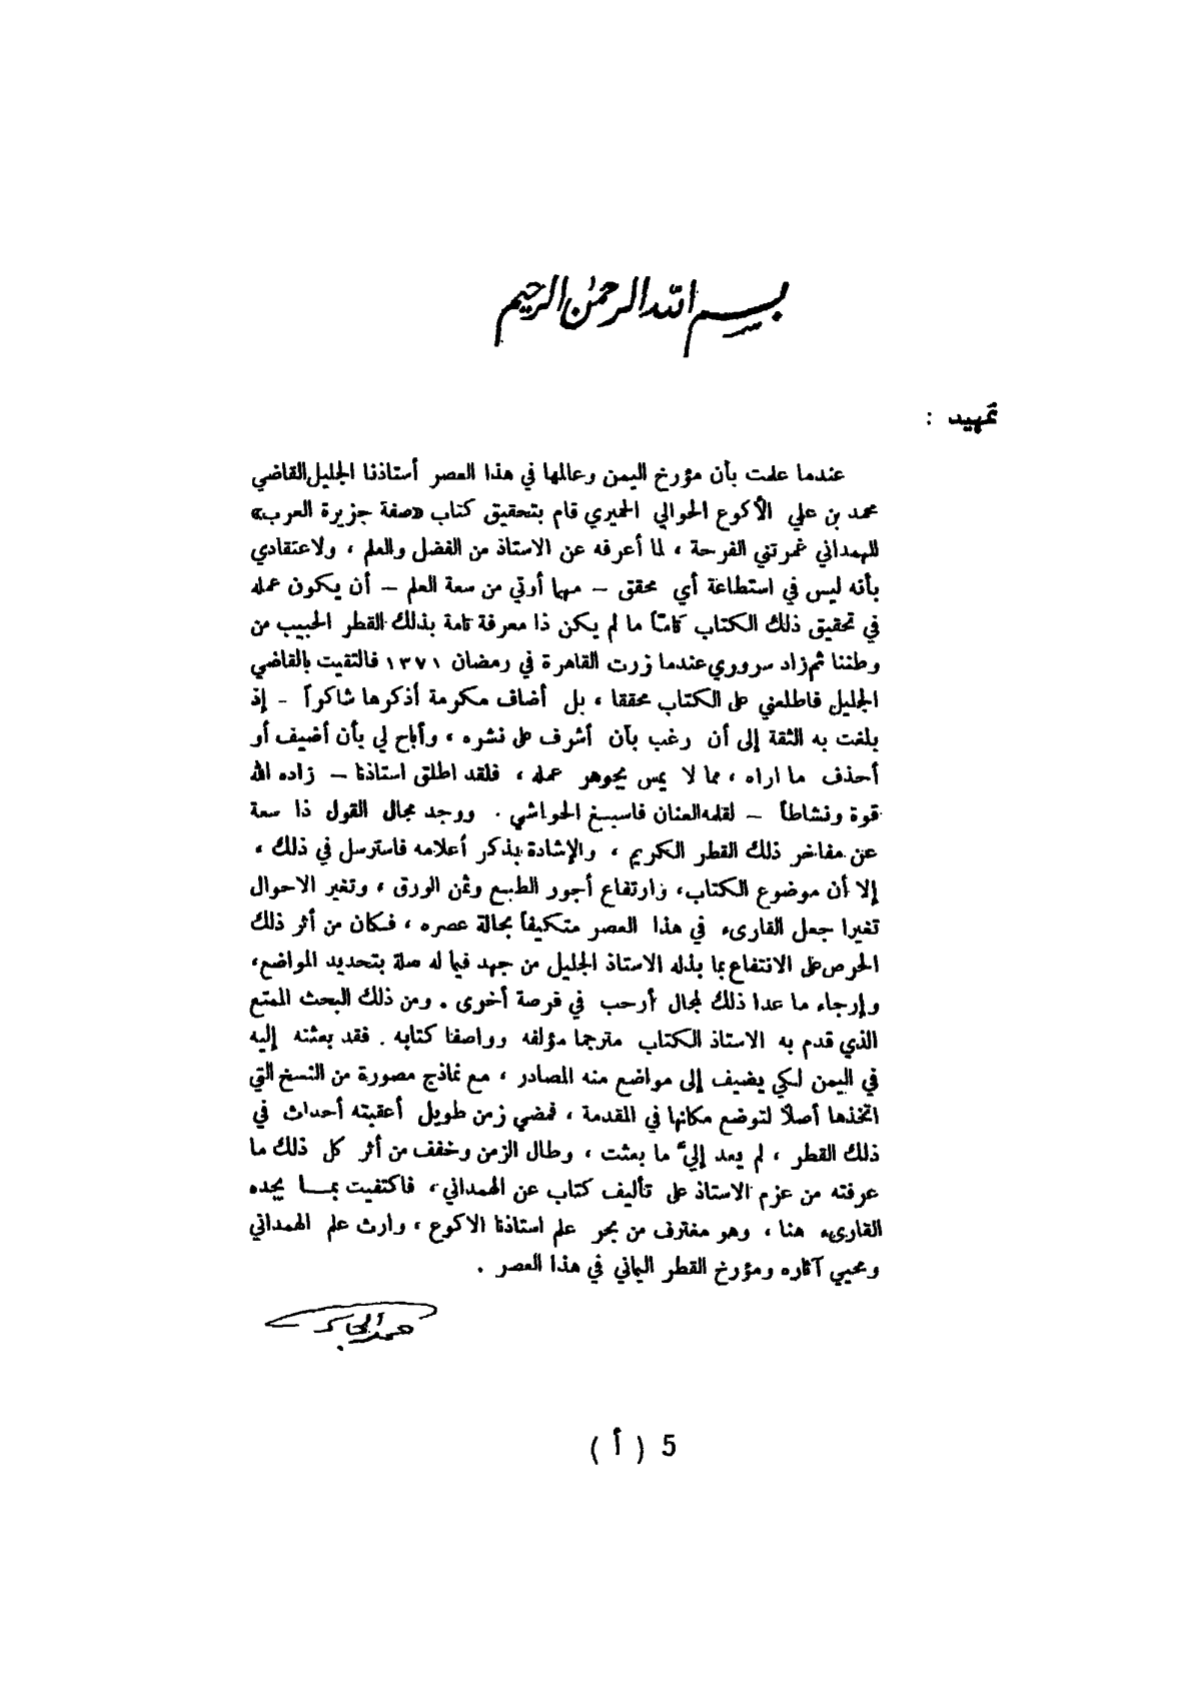 بسم الله الرحمن الرحيم
تمهيد :
عندما علمت بأن مؤرخ اليمن وعالمها في هذا العصر أستاذنا الجليل القاضي
محمد بن علي الأكوع الحوالي الحميري قام بتحقيق كتاب «صفة جزيرة العرب»
للهمداني غمرتني الفرحة ، لما أعرفه عن الاستاذ من الفضل والعلم ، ولاعتقادي
بأنه ليس في استطاعة أي محقق – مهما أوتي من سعة العلم – أن يكون عمله
في تحقيق ذلك الكتاب كاملاً ما لم يكن ذا معرفة تامة بذلك القطر الحبيب من
وطننا ثم زاد سروري عندما زرت القاهرة في رمضان ١٣٧١ فالتقيت بالقاضي
الجليل فاطلعني على الكتاب محققا ، بل أضاف مكرمة أذكرها شاكراً - إذ
بلغت به الثقة إلى أن رغب بأن أشرف على نشره ، وأباح لي بأن أضيف أو
أحذف ما اراه ، مما لا يمس بجوهر عمله ، فلقد اطلق استاذنا – زاده الله
قوة ونشاطاً – لقلمه العنان فاسبغ الحواشي . ووجد مجال القول ذا سعة
عن مفاخر ذلك القطر الكريم ، والإشادة بذكر أعلامه فاسترسل في ذلك ،
إلا أن موضوع الكتاب، وارتفاع أجور الطبع وثمن الورق ، وتغير الاحوال
تغيرا جعل القارىء في هذا العصر متكيفاً بحالة عصره ، فكان من أثر ذلك
الحرص على الانتفاع بما بذله الاستاذ الجليل من جهد فيما له صلة بتحديد المواضع،
وإرجاء ما عدا ذلك لمجال أرحب في فرصة أخرى . ومن ذلك البحث الممتع
الذي قدم به الاستاذ الكتاب مترجما مؤلفه وواصفا كتابه . فقد بعثته إليه
في اليمن لكي يضيف إلى مواضع منه المصادر ، مع نماذج مصورة من النسخ التي
اتخذها أصلاً لتوضع مكانها في المقدمة ، فمضى زمن طويل أعقبته أحداث في
ذلك القطر ، لم يعد إليّ ما بعثت ، وطال الزمن وخفف من أثر كل ذلك ما
عرفته من عزم الاستاذ على تأليف كتاب عن الهمداني ، فاكتفيت بمـا يجده
القارىء هنا ، وهو مغترف من بحر علم استاذنا الاكوع ، وارث علم الهمداني
ومحيي آثاره ومؤرخ القطر اليماني في هذا العصر .
حمد الجاسر
5 ( أ )